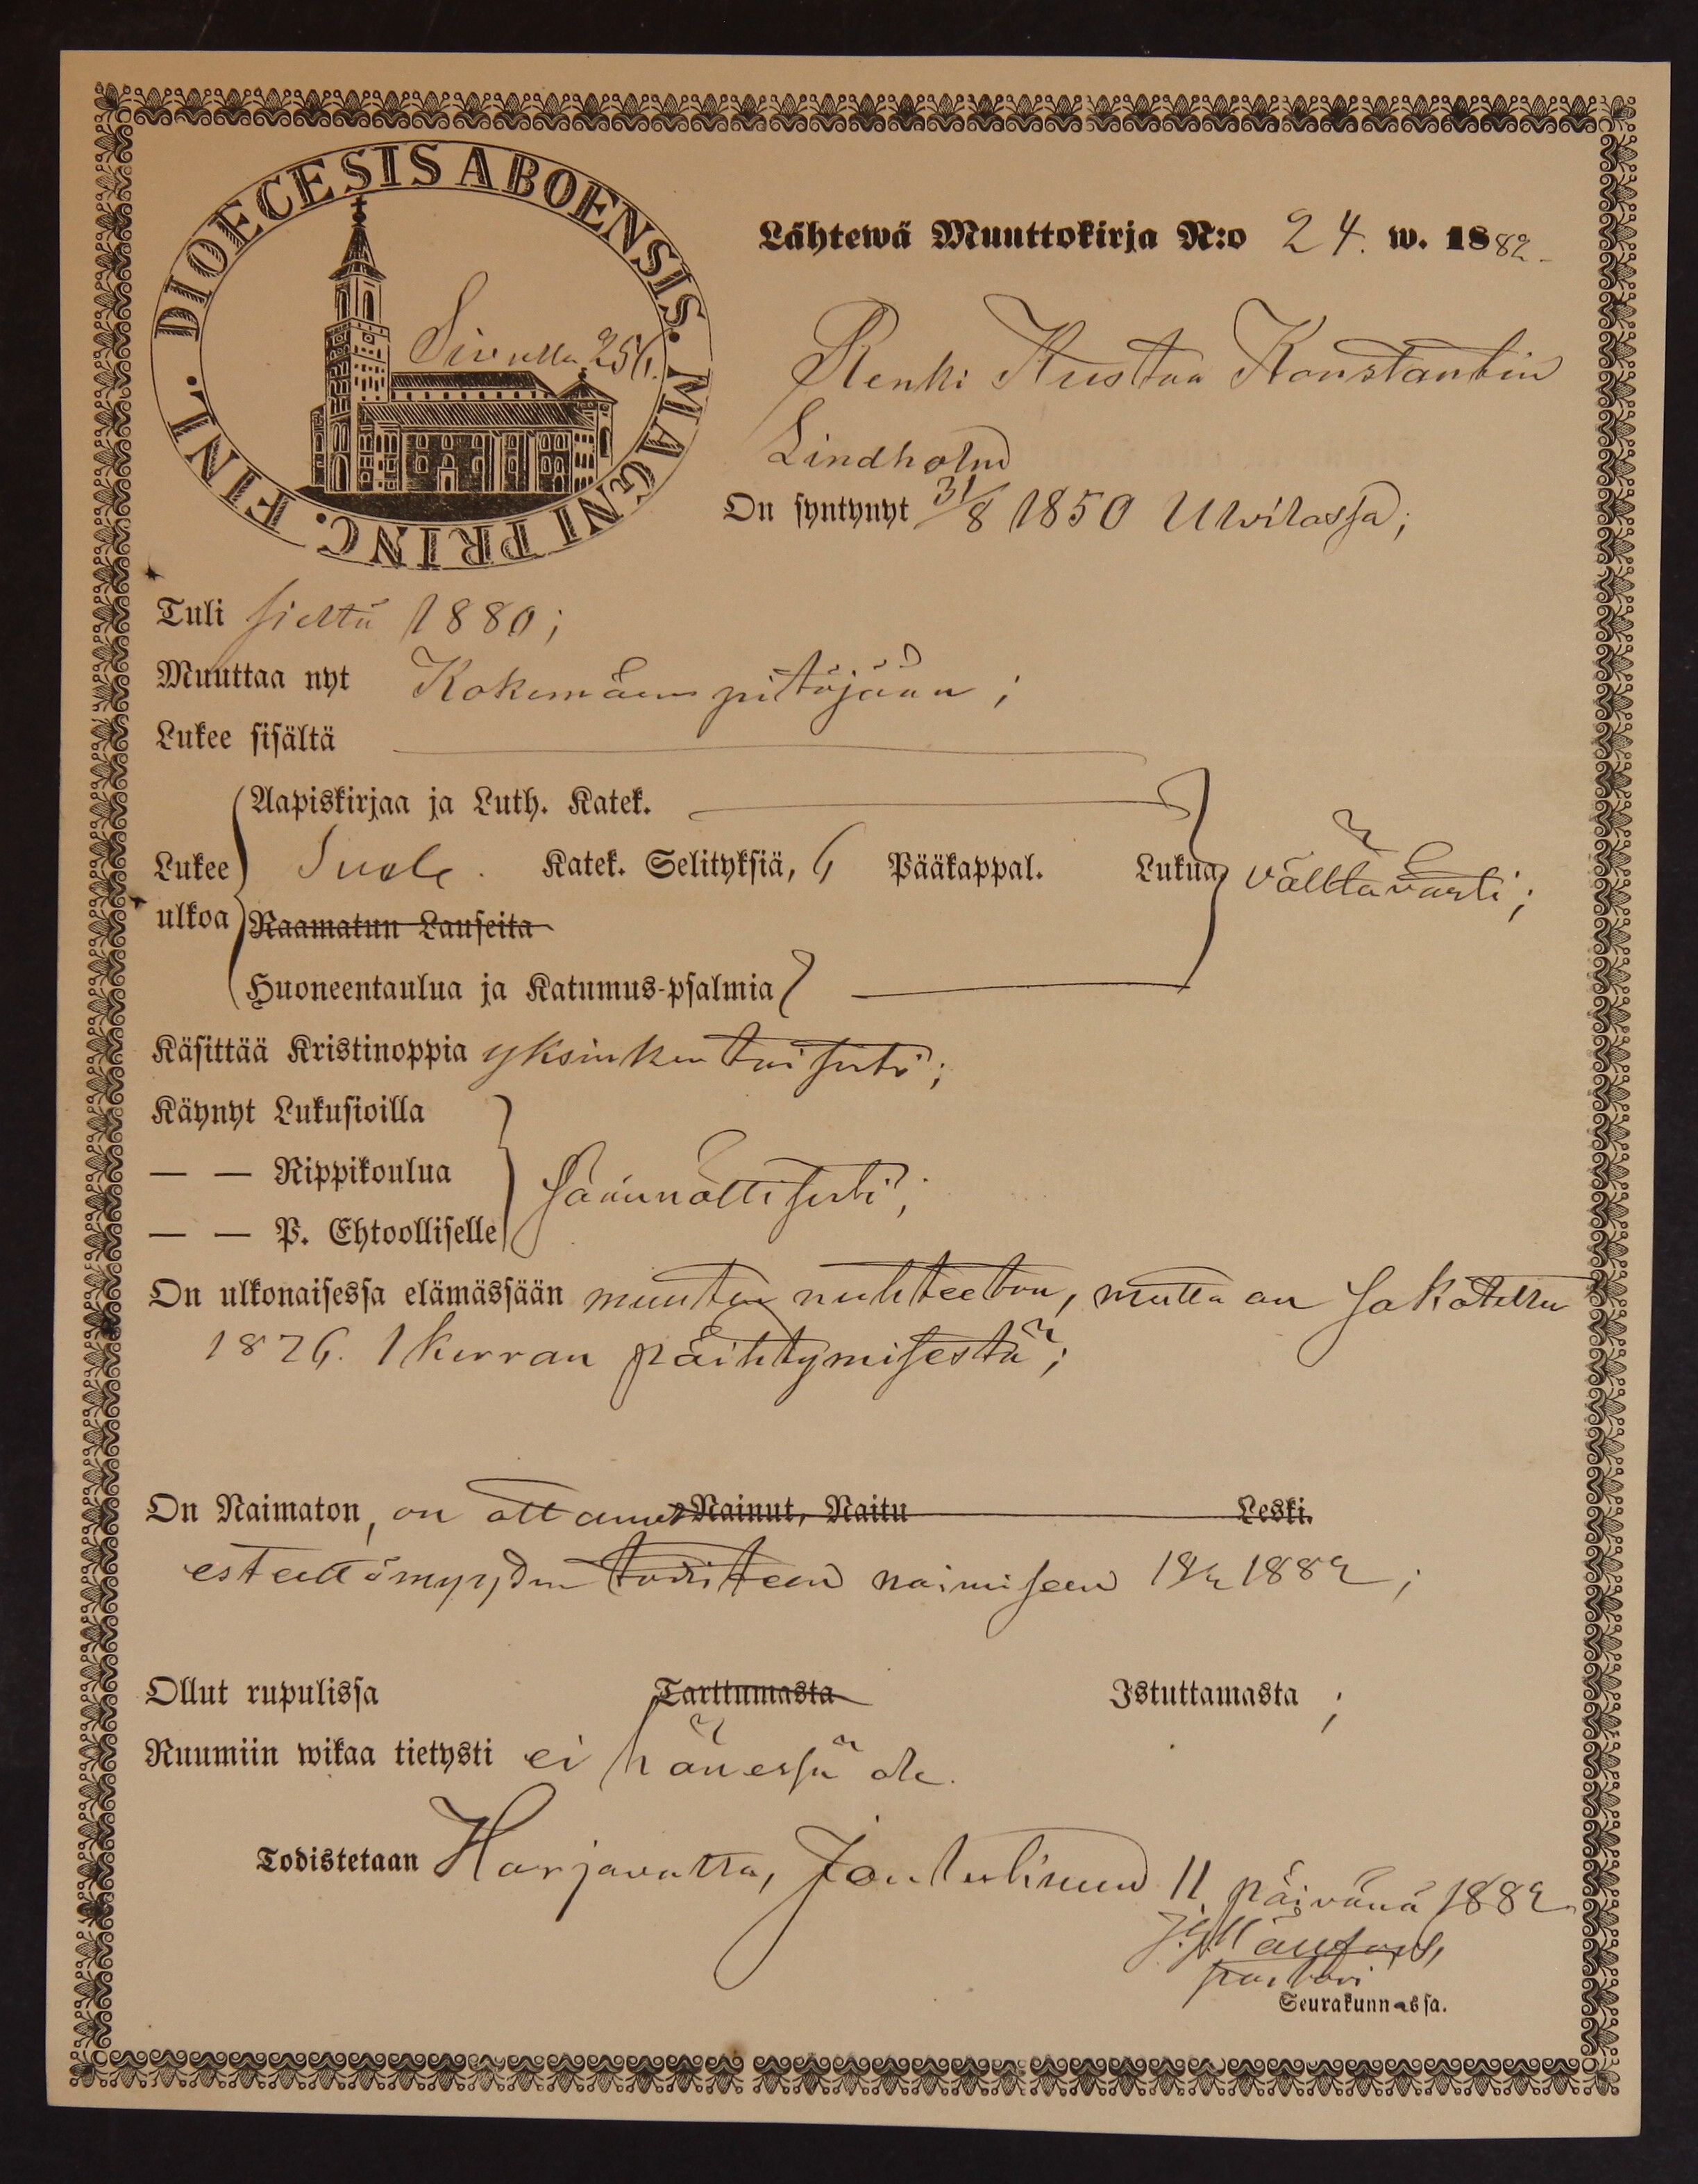 DIOECESIS ABOENSIS. MAGNI PRINC. FINL.
Sivulla 256.
Lähtewä Muuttokirja N:o 24. w. 1882.
Renki Kustaa Konstantin
Lindholm
On syntynyt 31/8 1850 Ulvilassa;
Tuli sieltä 1880;
Muuttaa nyt Kokemäen pitäjään;
Lukee sisältä
Aapiskirjaa ja Luth. Katek.
Lukee Katek. Selityksiä, 6 Pääkappal. Lukua välttävästi;
ulkoa Raamatun Lauseita
Huoneentaulua ja Katumus-psalmia
Käsittää Kristinoppia yksinkertaisesti;
Käynyt Lukusioilla
— — Rippikoulua
säännöllisesti;
— — P. Ehtoolliselle
On ulkonaisessa elämässään muuten nuhteeton, mutta on sakotettu
1876. 1 kerran päihtymisestä;
On Naimaton, on ottanut Nainut, Naitu Leski.
esteettömyyden todisteen naimiseen 1882;
Ollut rupulissa Tarttumasta Istuttamasta;
Ruumiin wikaa tietysti ei hänessä ole.
Todistetaan Harjavalta, 11 päivänä 1882
pastori
Seurakunnassa.